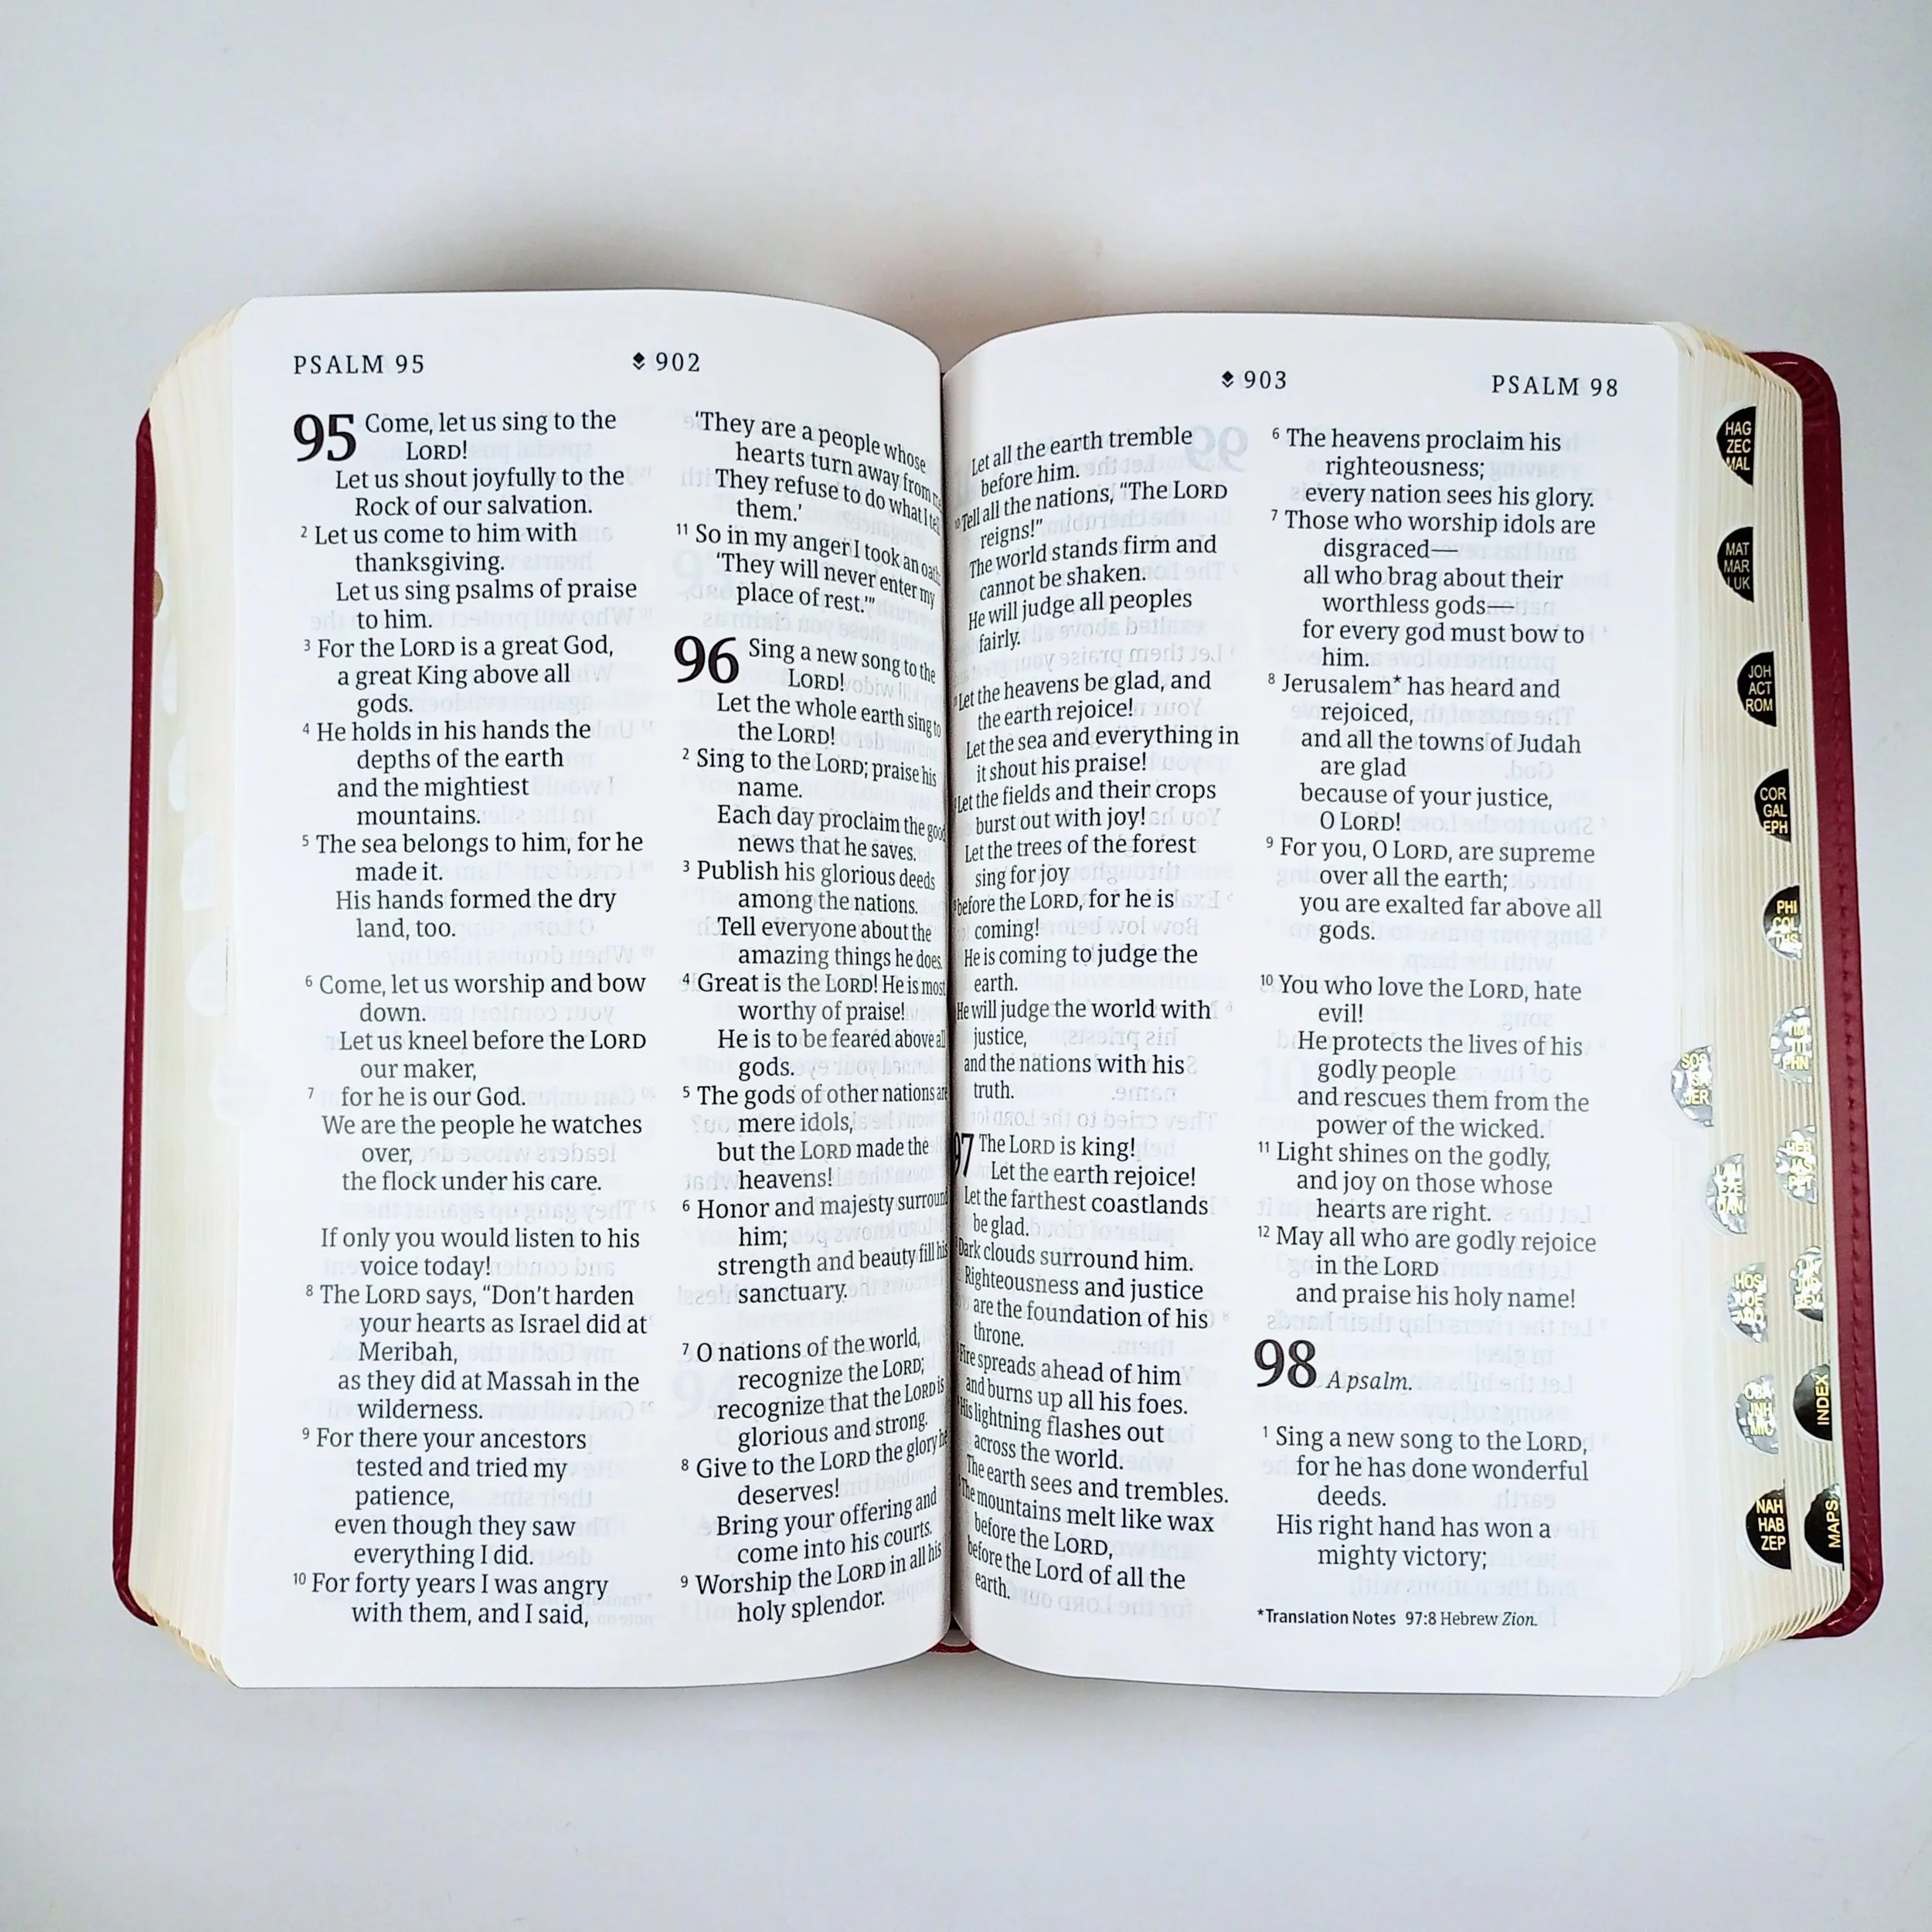 PSALM 95
902
95 Come, let us sing to the
LORD!
Let us shout joyfully to the
Rock of our salvation.
2 Let us come to him with
thanksgiving.
Let us sing psalms of praise
to him.
3 For the LORD is a great God,
a great King above all
gods.
4 He holds in his hands the
depths of the earth
and the mightiest
mountains.
5 The sea belongs to him, for he
made it.
His hands formed the dry
land, too.
6 Come, let us worship and bow
down.
Let us kneel before the LORD
our maker,
7 for he is our God.
We are the people he watches
over,
the flock under his care.
If only you would listen to his
voice today!
8 The LORD says, “Don't harden
your hearts as Israel did at
Meribah,
as they did at Massah in the
wilderness.
9 For there your ancestors
tested and tried my
patience,
even though they saw
everything I did.
10 For forty years I was angry
with them, and I said,
‘They are a people whose
hearts turn away from
They refuse to do what I tell
them.’
11 So in my anger I took an
‘They will never enter my
place of rest.’”
96 Sing a new song to the
LORD!
Let the whole earth sing to
the LORD!
2 Sing to the LORD; praise his
name.
Each day proclaim the good
news that he saves.
3 Publish his glorious deeds
among the nations.
Tell everyone about the
amazing things he does.
4 Great is the LORD! He is most
worthy of praise!
He is to be feared above all
gods.
5 The gods of other nations are
mere idols,
but the LORD made the
heavens!
6 Honor and majesty surround
him;
strength and beauty fill his
sanctuary.
7 O nations of the world,
recognize the LORD;
recognize that the LORD is
glorious and strong.
8 Give to the LORD the glory he
deserves!
Bring your offering and
come into his courts.
9 Worship the LORD in all his
holy splendor.
903
PSALM 98
Let all the earth tremble
before him.
10 Tell all the nations, “The LORD
reigns!”
The world stands firm and
cannot be shaken.
He will judge all peoples
fairly.
Let the heavens be glad, and
the earth rejoice!
Let the sea and everything in
it shout his praise!
Let the fields and their crops
burst out with joy!
Let the trees of the forest
sing for joy
before the LORD, for he is
coming!
He is coming to judge the
earth.
He will judge the world with
justice,
and the nations with his
truth.
97 The LORD is king!
Let the earth rejoice!
Let the farthest coastlands
be glad.
Dark clouds surround him.
Righteousness and justice
are the foundation of his
throne.
Fire spreads ahead of him
and burns up all his foes.
His lightning flashes out
across the world.
The earth sees and trembles.
The mountains melt like wax
before the LORD,
before the Lord of all the
earth.
6 The heavens proclaim his
righteousness;
every nation sees his glory.
7 Those who worship idols are
disgraced—
all who brag about their
worthless gods—
for every god must bow to
him.
8 Jerusalem* has heard and
rejoiced,
and all the towns of Judah
are glad
because of your justice,
O LORD!
9 For you, O LORD, are supreme
over all the earth;
you are exalted far above all
gods.
10 You who love the LORD, hate
evil!
He protects the lives of his
godly people
and rescues them from the
power of the wicked.
11 Light shines on the godly,
and joy on those whose
hearts are right.
12 May all who are godly rejoice
in the LORD
and praise his holy name!
98 A psalm.
1 Sing a new song to the LORD,
for he has done wonderful
deeds.
His right hand has won a
mighty victory;
*Translation Notes 97:8 Hebrew Zion.
HAG
ZEC
MAL
MAT
MAR
LUK
JOH
ACT
ROM
COR
GAL
EPH
PHI
COL
HOS
JOE
NAH
HAB
ZEP
INDEX
MAPS